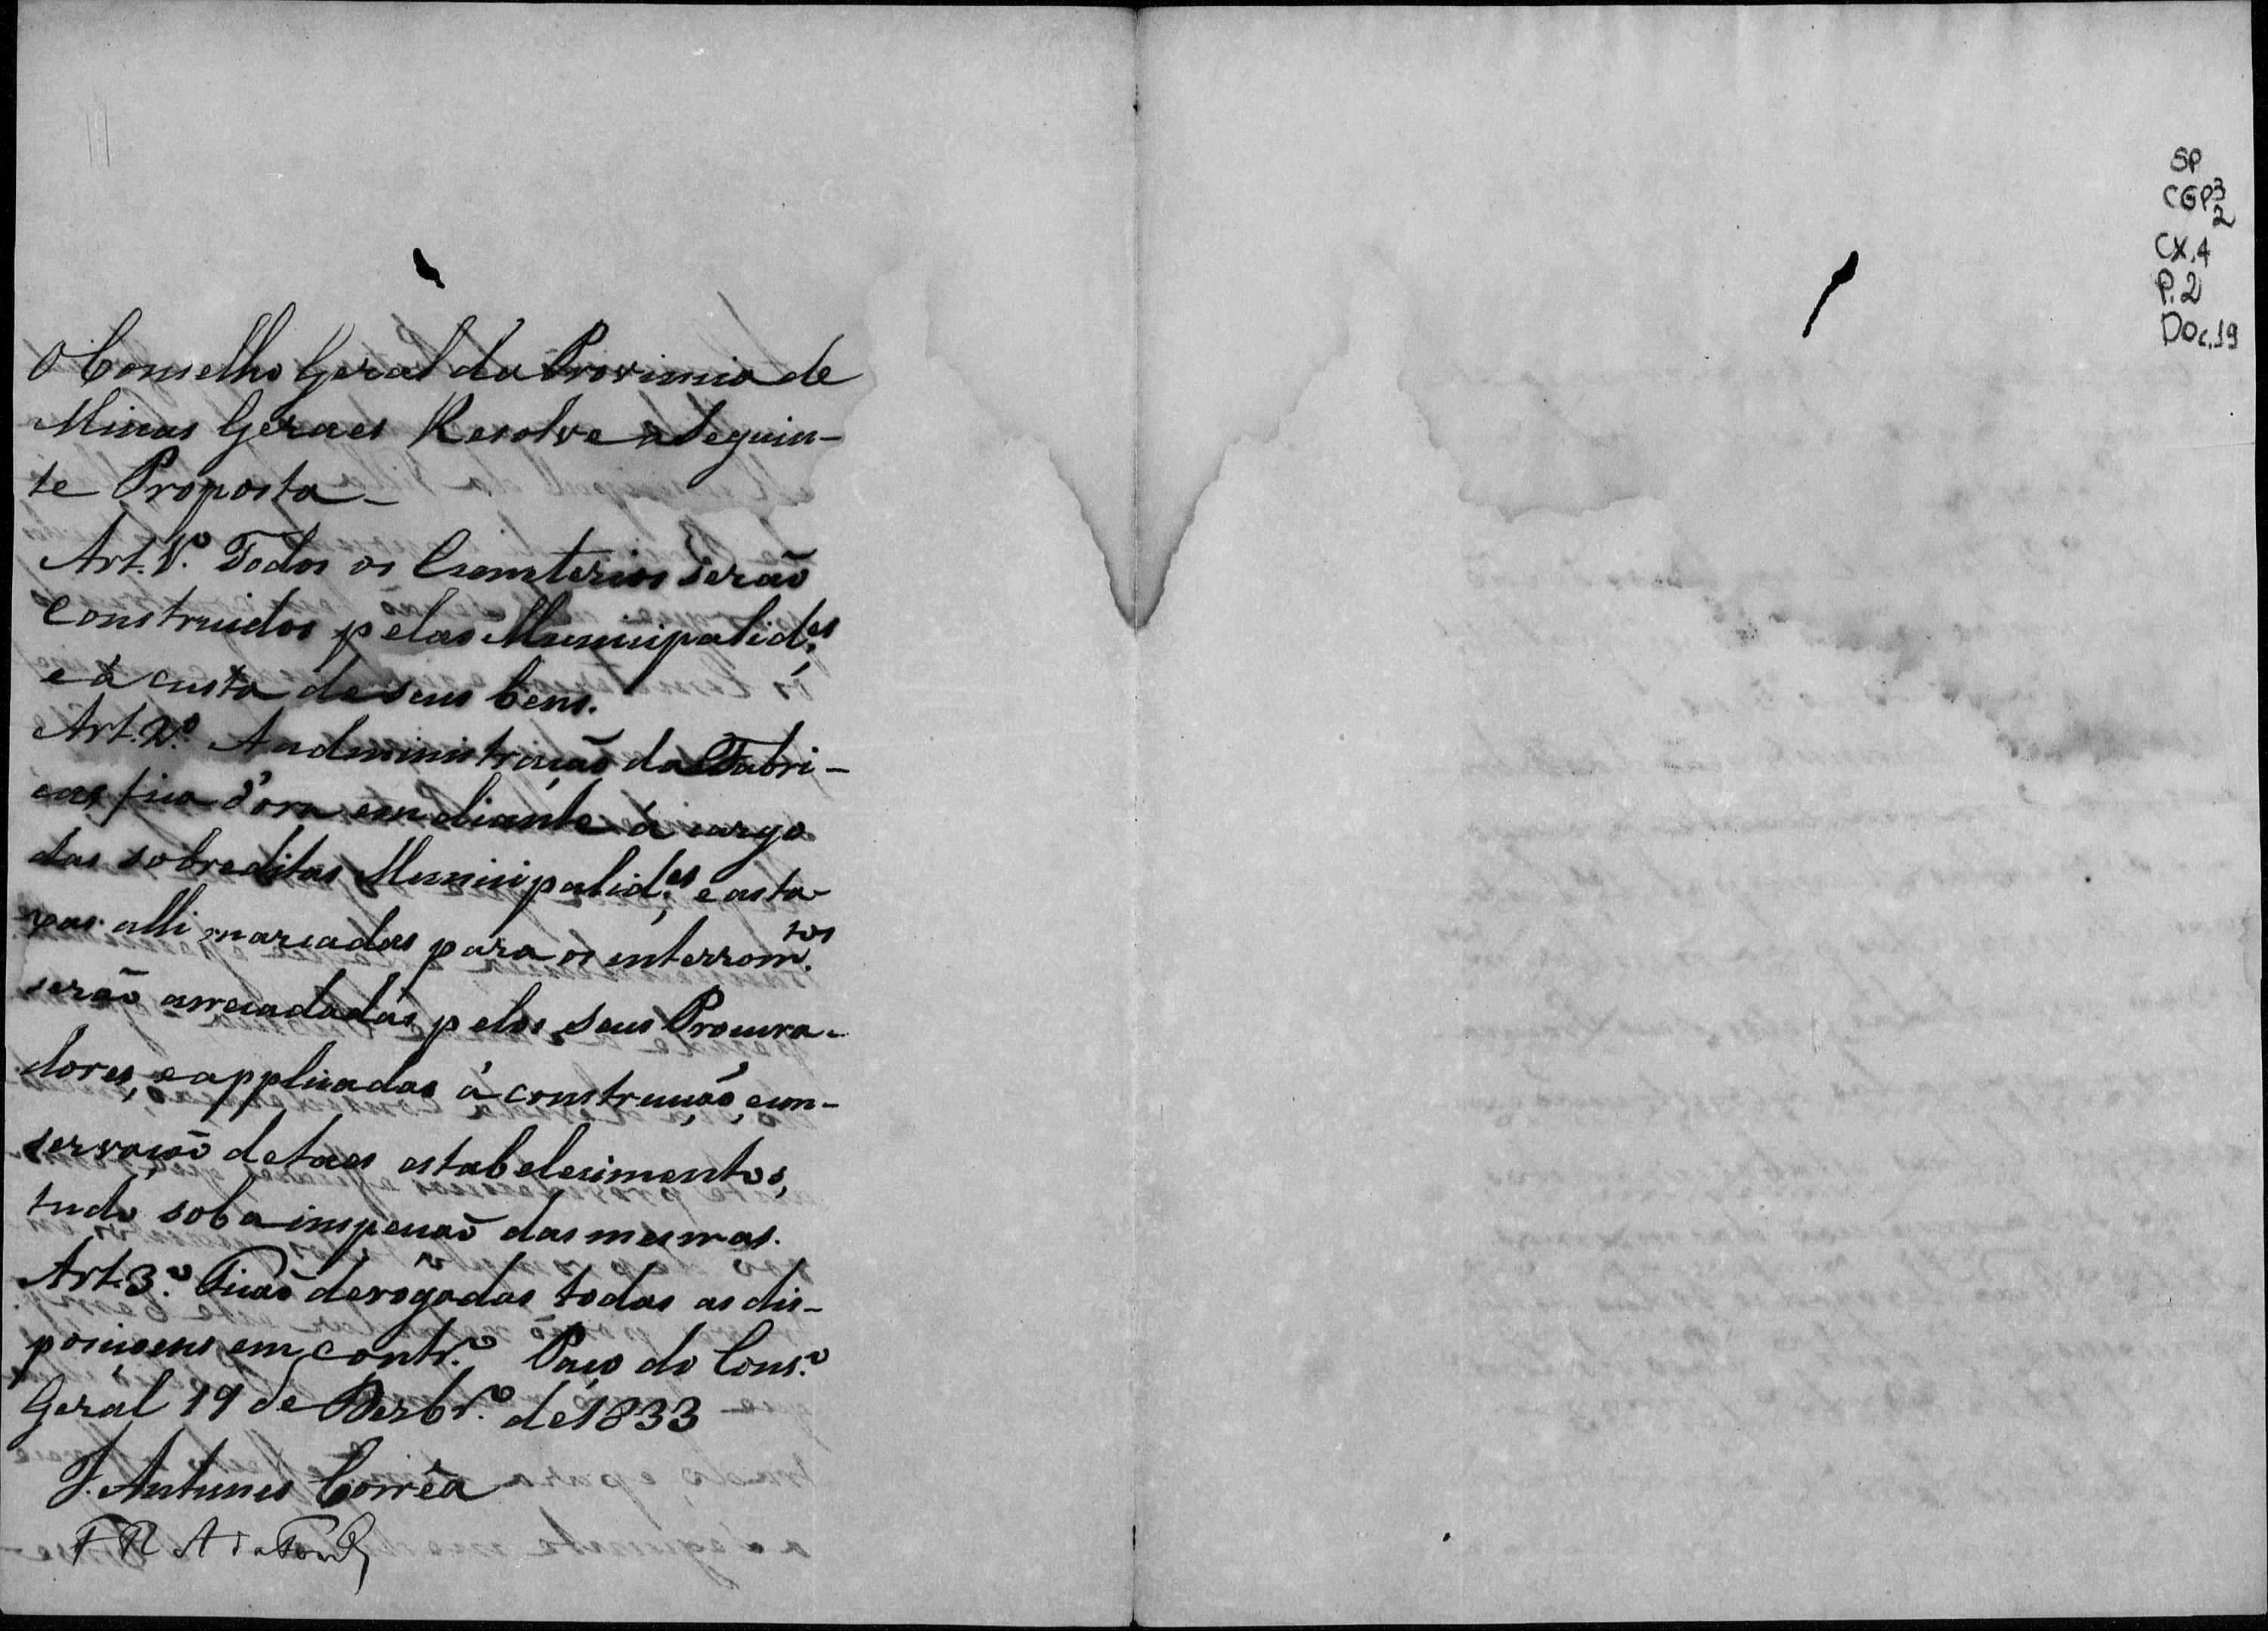 O Conselho Geral da Provincia de
Minas Geraes Resolve a Seguin-
te Proposta -
Art. 1º. Todos os Cemiterios serão
construidos pelas Municipalid.es,
e á custa de seus bens.
Art. 2º. A administração da Fabri-
cas fica d'ora em diante á cargo
das sobreditas Municipalid.es, e as ta-
xas alli marcadas para os enterram.tos
serão arrecadadas pelos seus Procura-
dores, e applicadas á construcção, e con-
servação de taes estabelecimentos,
tudo sob a inspecção das mesmas.
Art. 3º. Ficão derogadas todas as dis-
posiçoens em contr.º Paço do Cons.º
Geral 19 de Dezbr.º de 1833
J. Antunes Corrêa
F R A da
SP
CGP3
2
CX.4
P.2
Doc.19